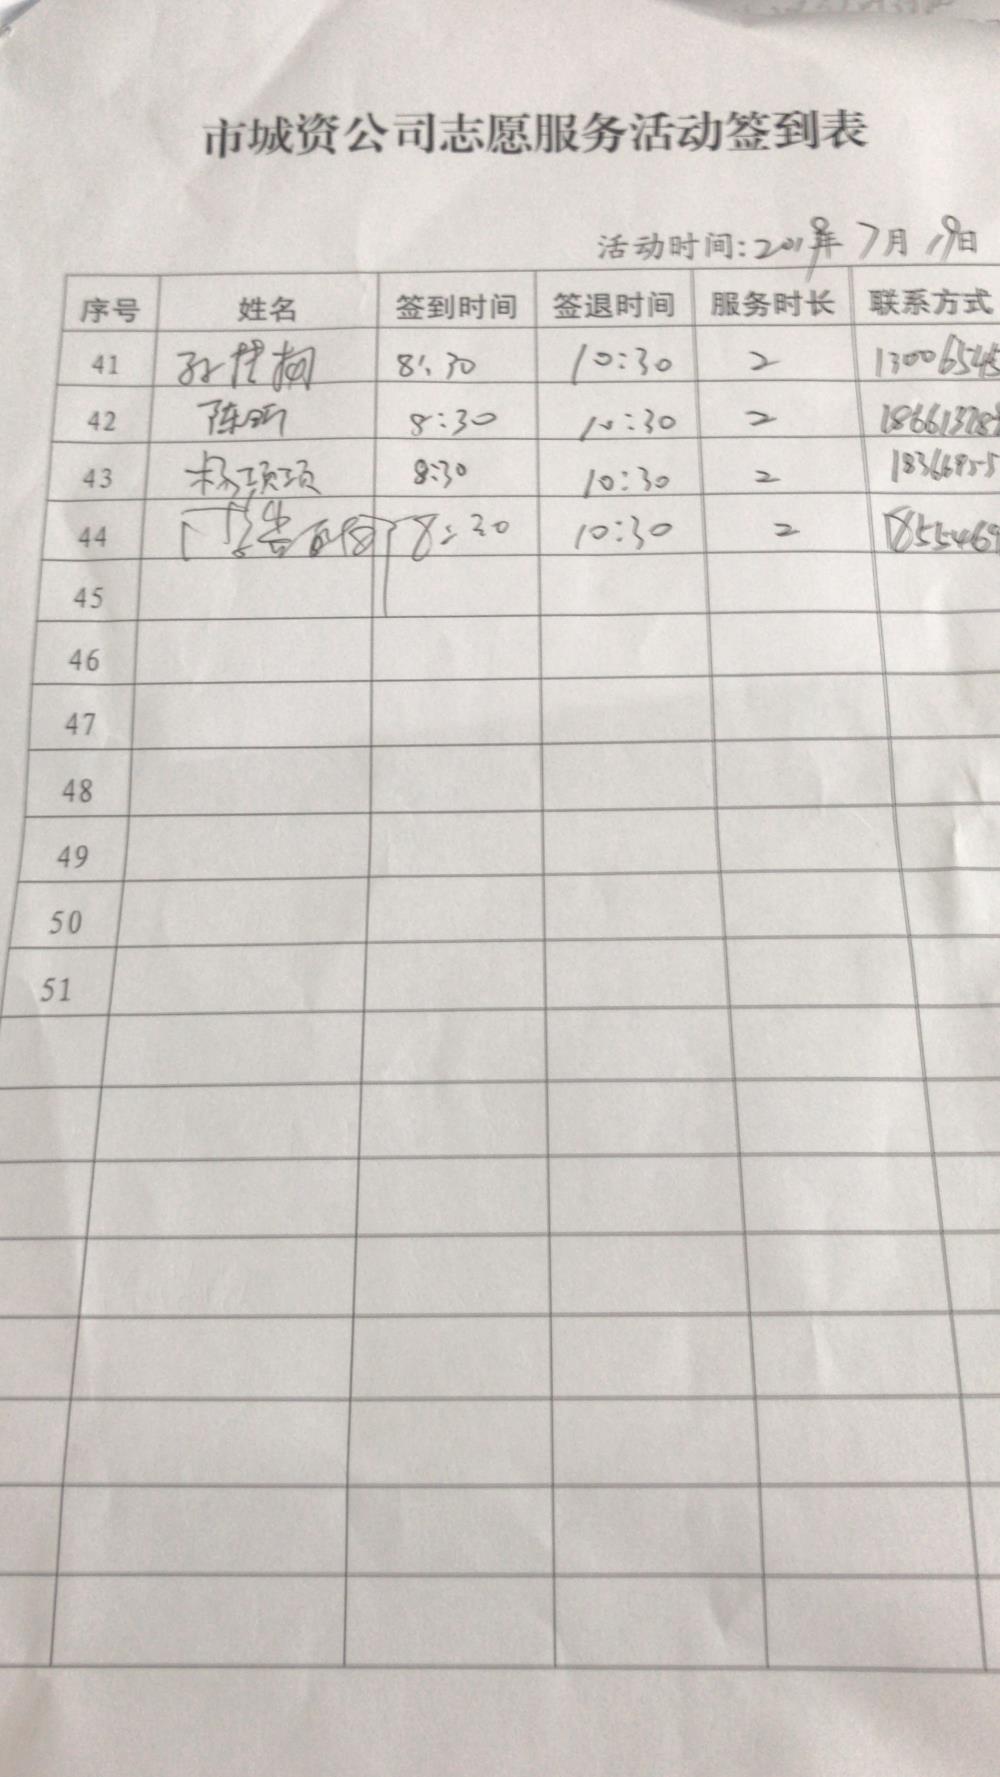 市城资公司志愿服务活动签到表
活动时间:2019年7月19日
序号 姓名 签到时间 签退时间 服务时长 联系方式
41 8:30 10:30 2 13006545
42 陈昕 8:30 10:30 2 18661378
43 杨顼顼 8:30 10:30 2
44 8:30 10:30 2 1855469
45
46
47
48
49
50
51